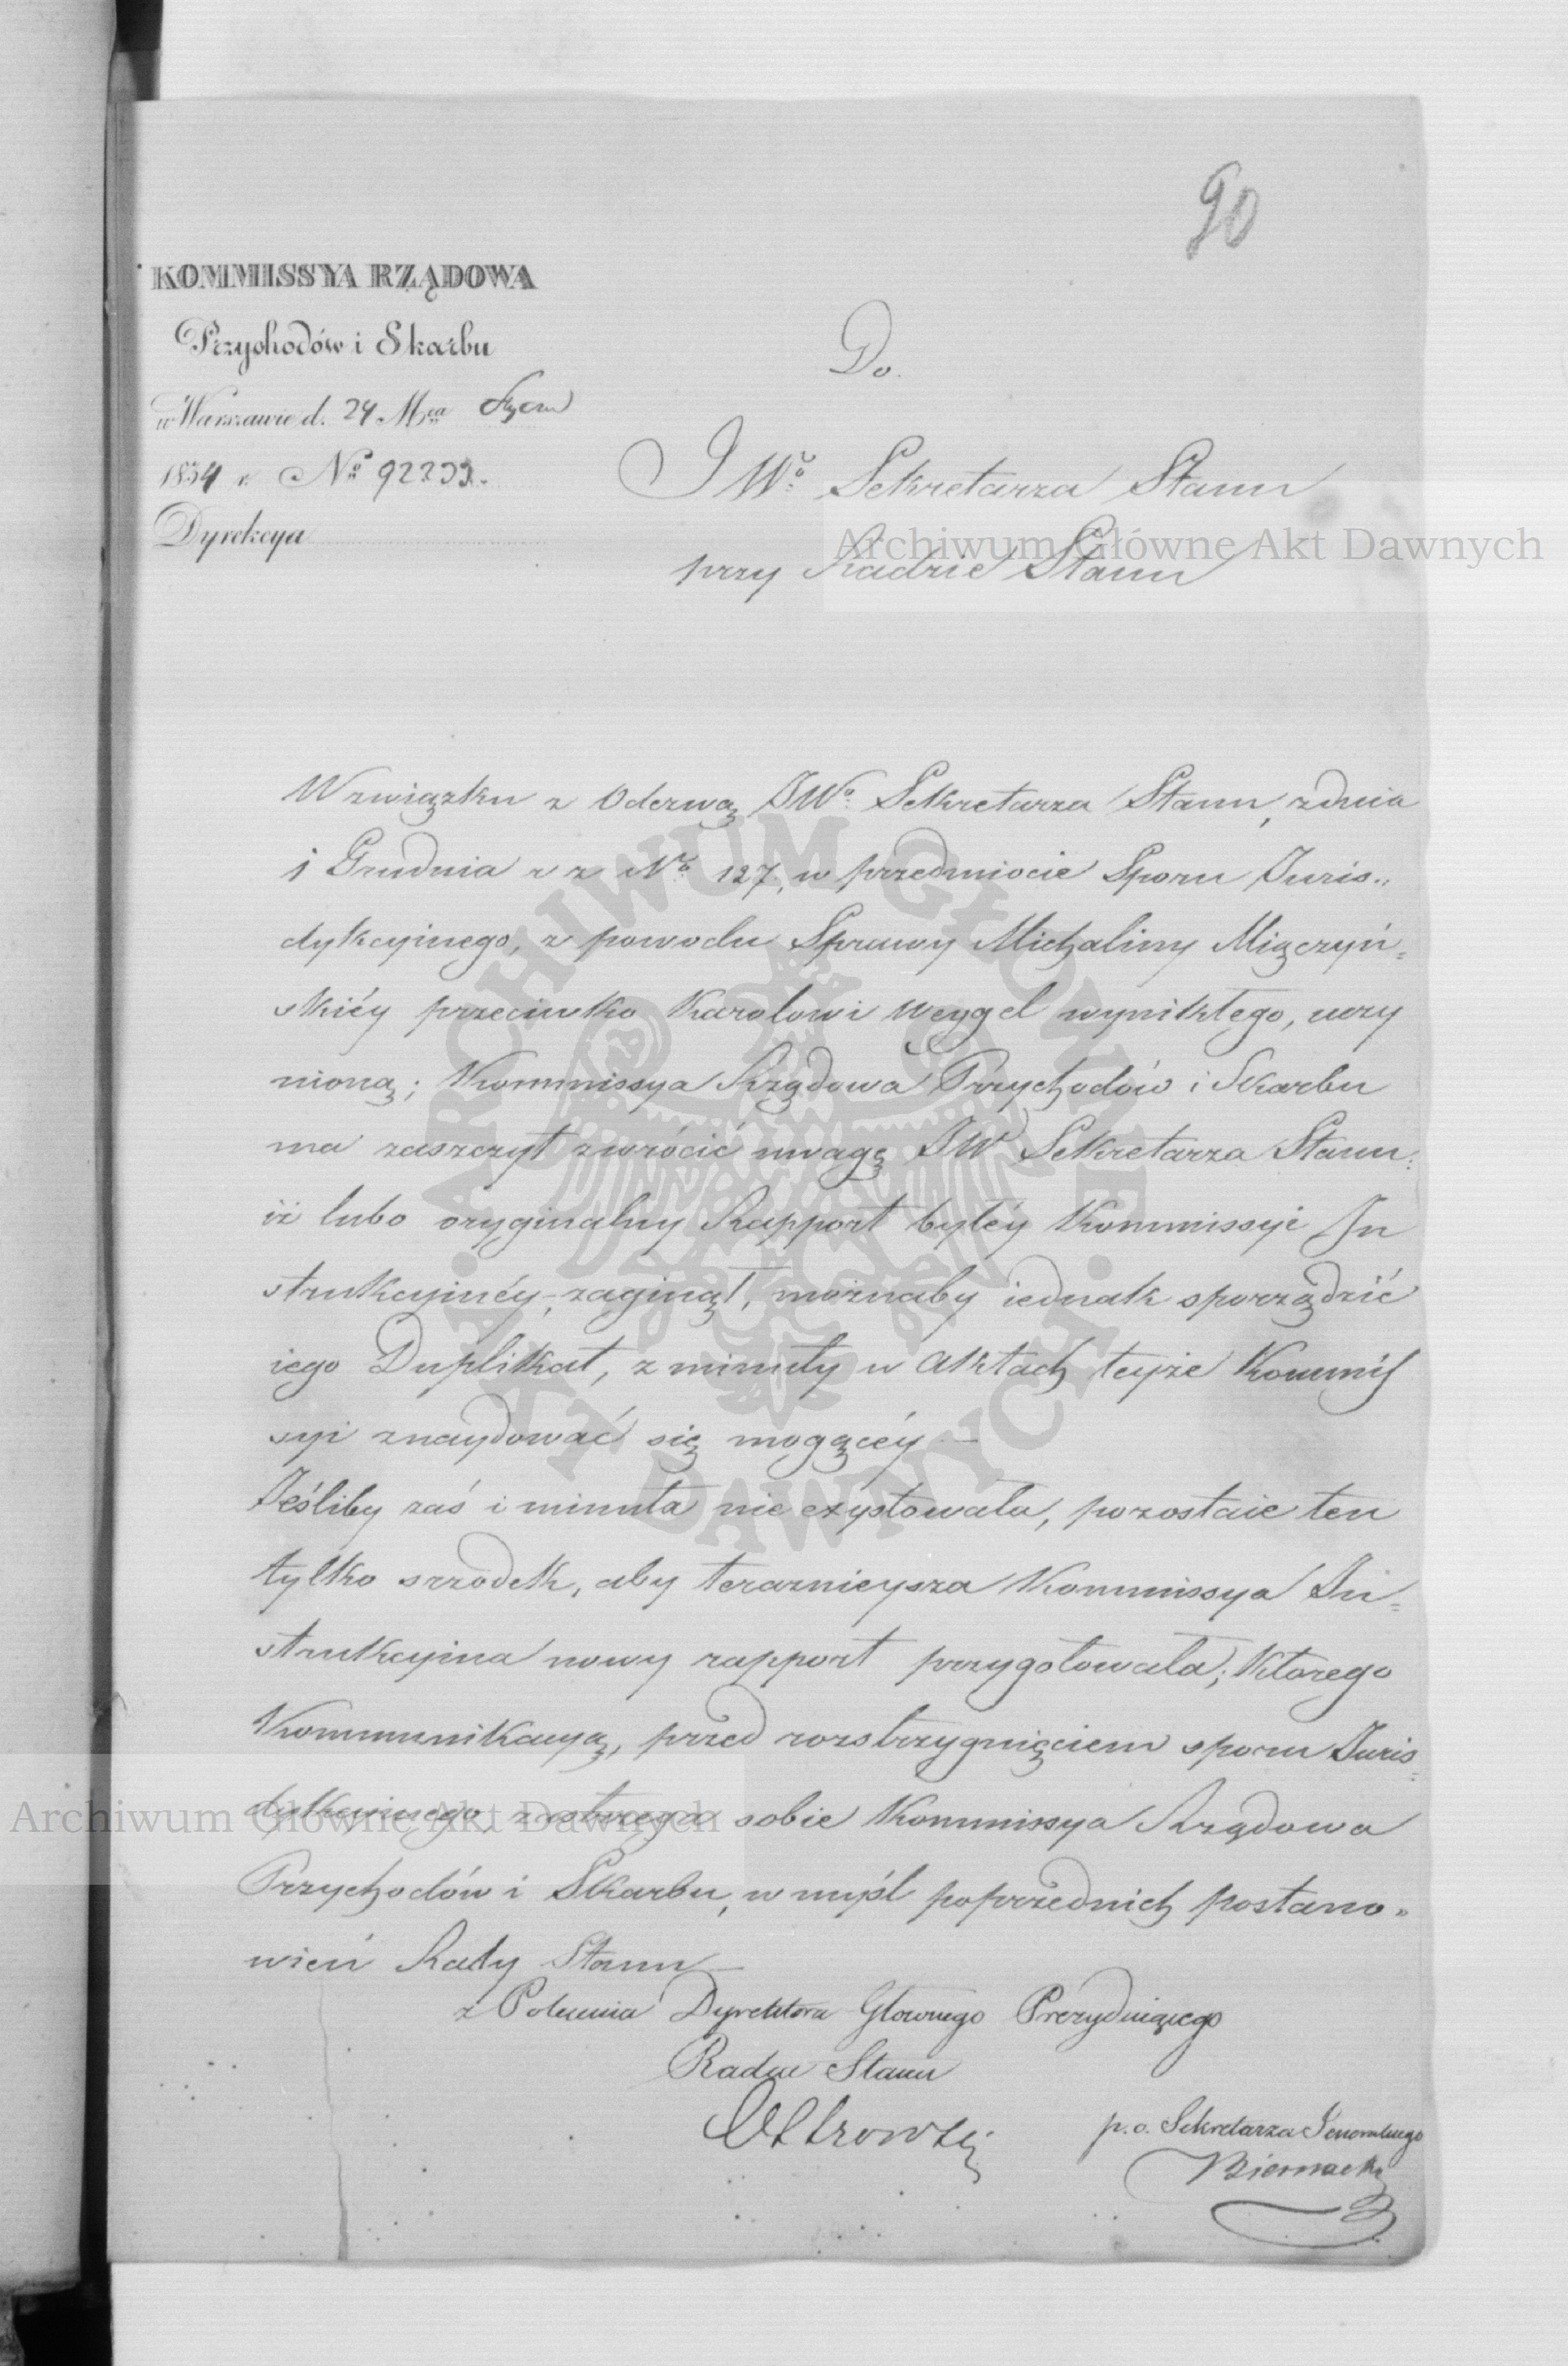 90
KOMMISSYA RZĄDOWA
Przychodów i Skarbu
w Warszawie d. 24 Mca Stycz
1834 r. No 92233.
Dyrekcya
Do
JWo Sekretarza Stanu
przy Radzie Stanu
Archiwum Główne Akt Dawnych
W związku z Odezwą JWo Sekretarza Stanu, z dnia
1 Grudnia r z No 127, w przedmiocie Sporu Juris„
dykcyinego, z powodu Sprawy Michaliny Miączyń=
skiéy przeciwko Karolowi Weygel wynikłego, uczy
nioną; Kommissya Rządowa Przychodów i Skarbu
ma zaszczyt zwrócić uwagę JW Sekretarza Stanu:
iż lubo oryginalny Rapport byłéy Kommissyi In
strukcyinéy, zaginął, możnaby iednak sporządzić
iego Duplikat, z minuty w Aktach teyże Kommis
syi znaydować się mogącéy —
Jeśliby zaś i minuta nie exystowała, pozostaie ten
tylko srzodek, aby teraznieysza Kommissya In=
strukcyina nowy rapport przygotowała; którego
Kommunikacyą, przed rozstrzygnięciem sporu Juris=
dykcyinego, zastrzega sobie Kommissya Rządowa
Archiwum Główne Akt Dawnych
Przychodów i Skarbu, w myśl poprzednich postano„
wień Rady Stanu —
z Polecenia Dyrektora Głownego Prezyduiącego
Radca Stanu
p. o. Sekretarza Jeneralnego
Biernacki
ARCHIWUM GŁÓWNE AKT DAWNYCH